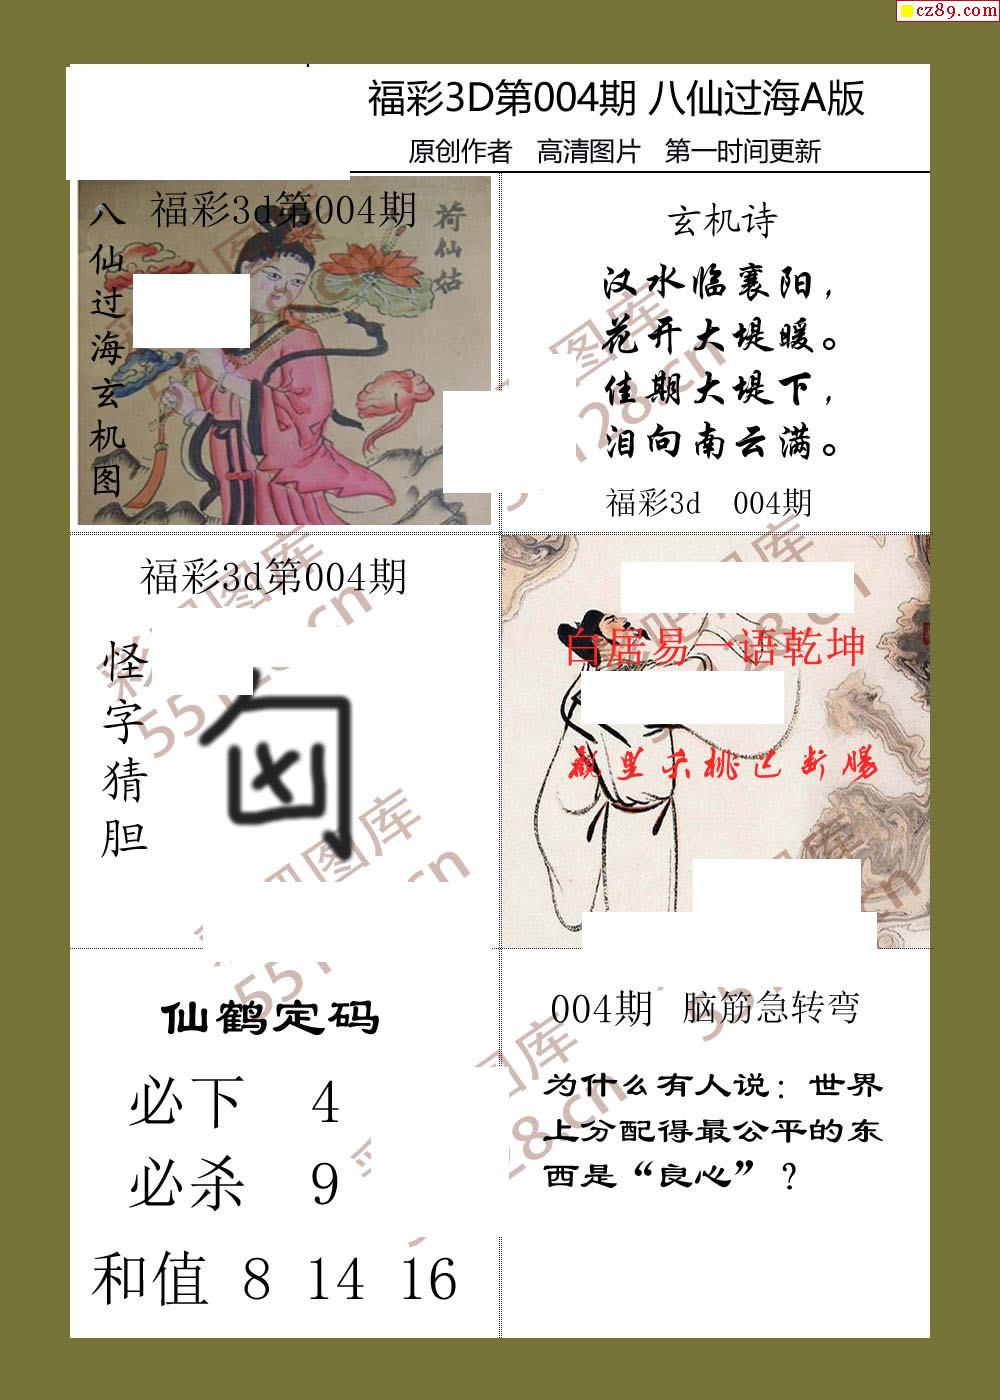 cz89.com
福彩3D第004期 八仙过海A版
原创作者 高清图片 第一时间更新
福彩3d第004期
八仙过海玄机图
荷仙姑
玄机诗
汉水临襄阳，
花开大堤暖。
佳期大堤下，
泪向南云满。
福彩3d 004期
福彩3d第004期
怪字猜胆
白居易一语乾坤
仙鹤定码
必下 4
必杀 9
和值 8 14 16
004期 脑筋急转弯
为什么有人说：世界
上分配得最公平的东
西是“良心”？